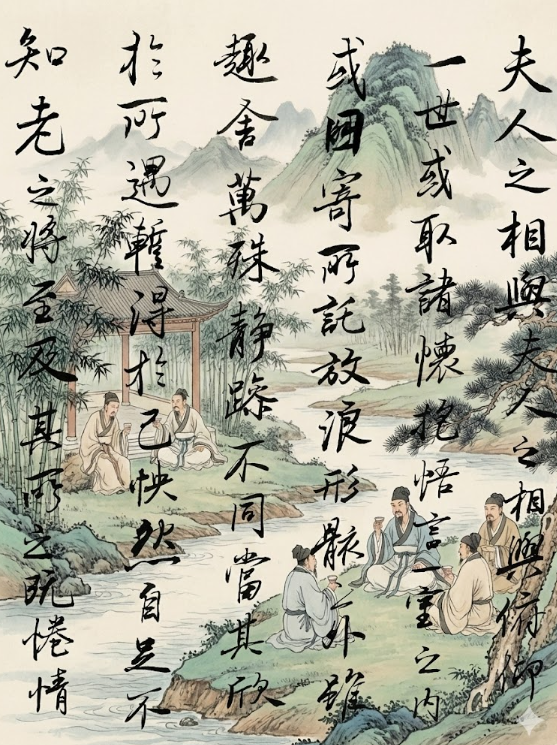 夫人之相與夫人之相與俯仰
一世或取諸懷抱悟言一室之內
或因寄所託放浪形骸之外雖
趣舍萬殊静躁不同當其欣
於所遇暫得於己怏然自足不
知老之將至及其所之既惓情